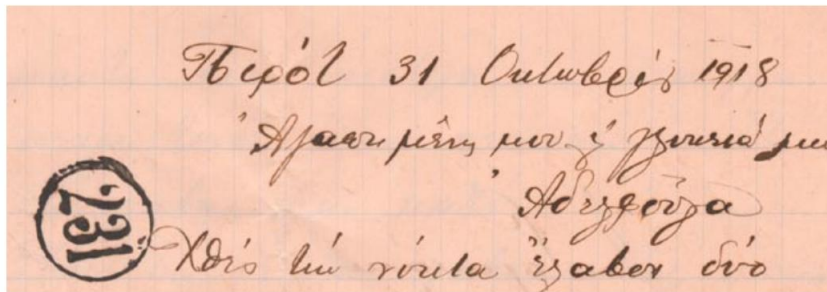 Πιρότ 31 Οκτωβρίου 1918
Ἀγαπημένη μου ἡ γλυκειά μου
Ἀδελφούλα
231
Χθές τήν νύκτα ἔλαβον δύο